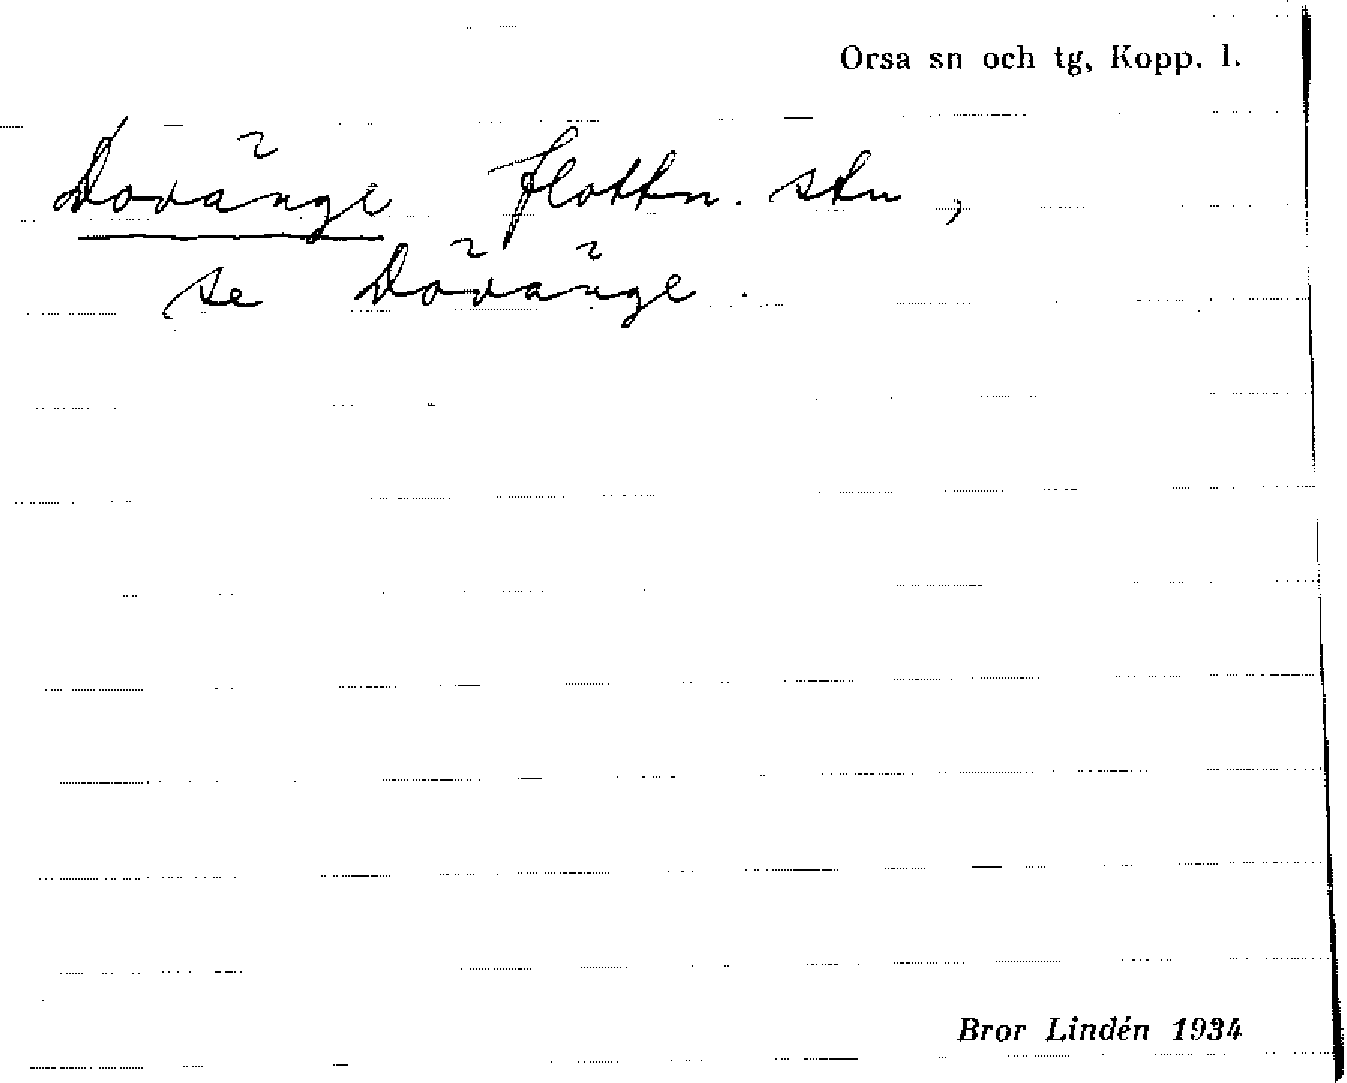 Orsa sn och tg, Kopp. l.
Dovänge flottn. stn,
se Dövänge.
Bror Lindén 1934